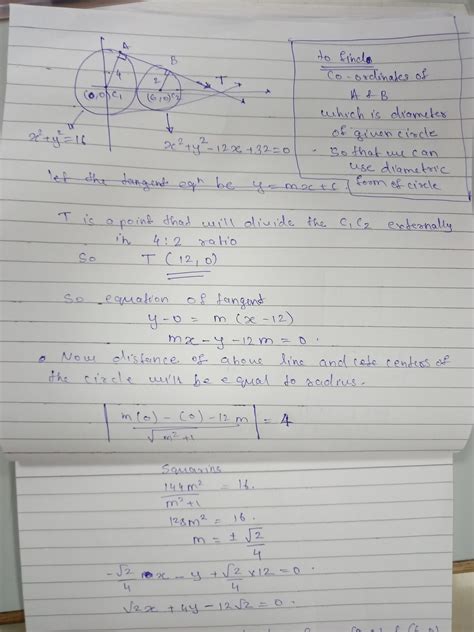 A
B
T
4
2
(0,0) C₁
(6,0) C₂
x²+y²=16
x²+y²-12x+32=0
to find
Co-ordinates of
A & B
which is diameter
of given circle
. So that we can
use diametric
form of circle
let the tangent eqⁿ be y=mx+c
T is a point that will divide the C₁C₂ externally
in 4:2 ratio
So T (12,0)
So equation of tangent
y-0 = m (x-12)
mx-y-12m = 0.
• Now distance of above line and centers of
the circle will be equal to radius.
| m(0) - (0) - 12m / √m²+1 | = 4
Squaring
144m² / m²+1 = 16.
128m² = 16.
m = ± √2/4
-√2/4 x - y + √2/4 × 12 = 0.
√2x + 4y - 12√2 = 0.